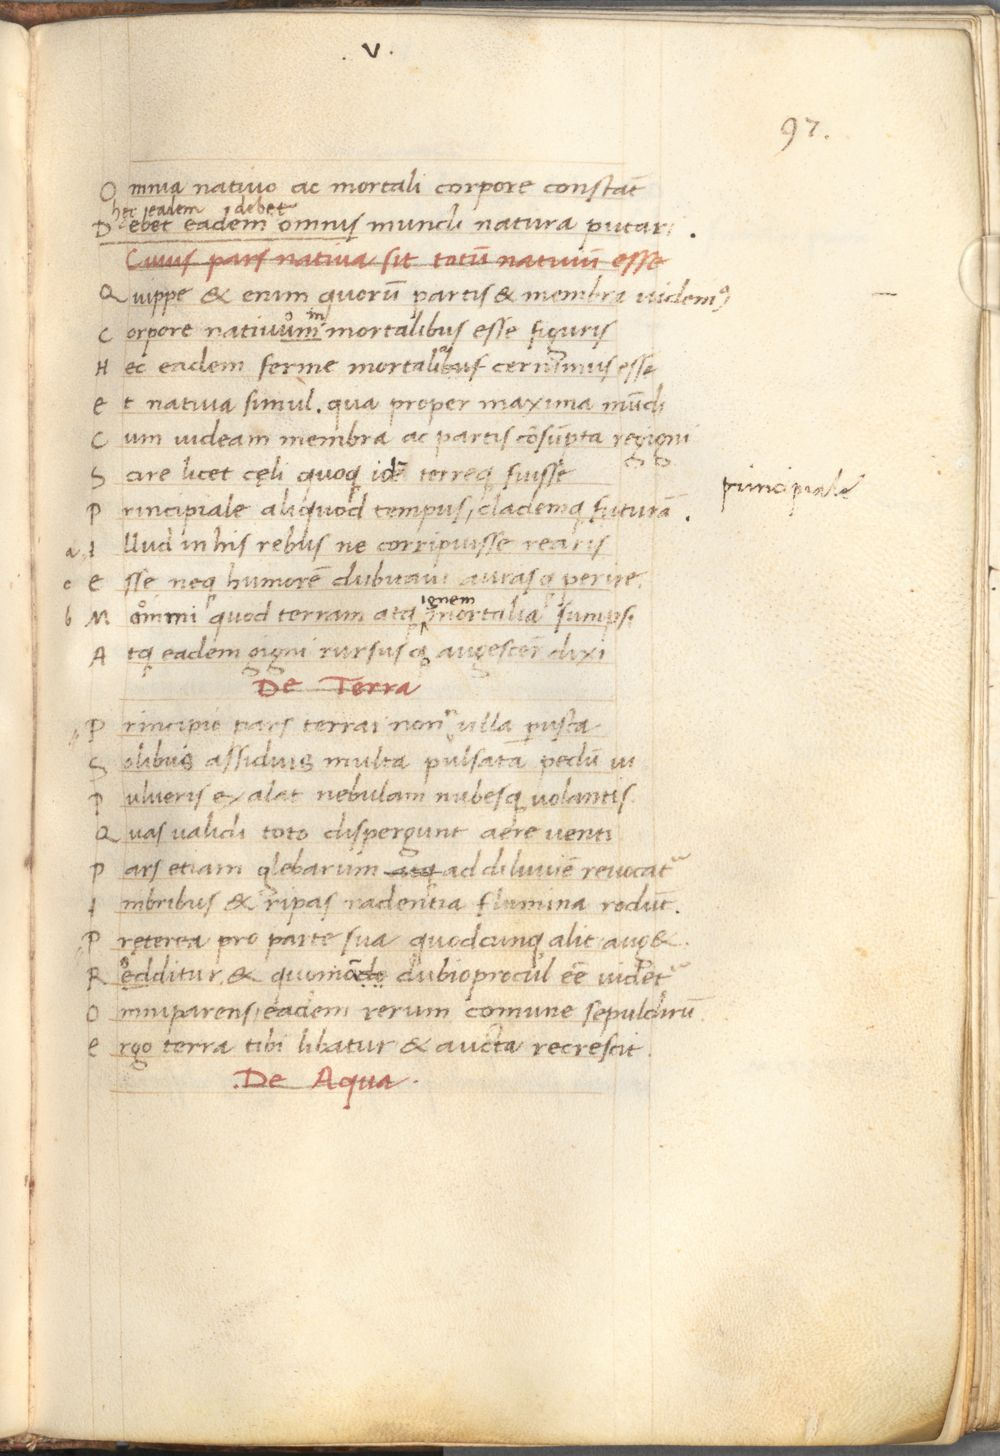 .V.
97.
Omnia nativo ac mortali corpore constāt
hec eadem debet
Debet eadem omnis mundi natura putari.
Cuius pars nativa sit totū nativū esse
Quippe & enim quorū partis & membra videmꝰ
Corpore nativum mortalibus esse figuris
Hec eadem ferme mortalibus cernimus esse
Et nativa simul. qua proper maxima mūdi
Cum videam membra ac partis cōsūpta regigni
Scire licet cęli quoq idē terreq fuisse
principiale
Principiale aliquod tempus, clademq futurā.
a Illud in his rebus ne corripuisse rearis
c Esse neq humorē dubitavi aurasq perire.
ignem
b Mommi quod terram atq mortalia sumpsi
Atq eadem gigni rursusq augescere dixi
De Terra
Principio pars terrai non ulla pusta
Solibus assiduis multa pulsata pedū vi
Pulveris exalat nebulam nubesq volantis
Quas validi toto dispergunt aere venti
Pars etiam glebarum atq ad diluviē revocat
Imbribus & ripas radentia flumina rodūt.
Pręterea pro parte sua quodcunq alit aug&.
Redditur, & quomodo dubio procul eē videt
Omniparens, eadem rerum comune sepulchrū
Ergo terra tibi libatur & aucta recrescit.
.De Aqua.